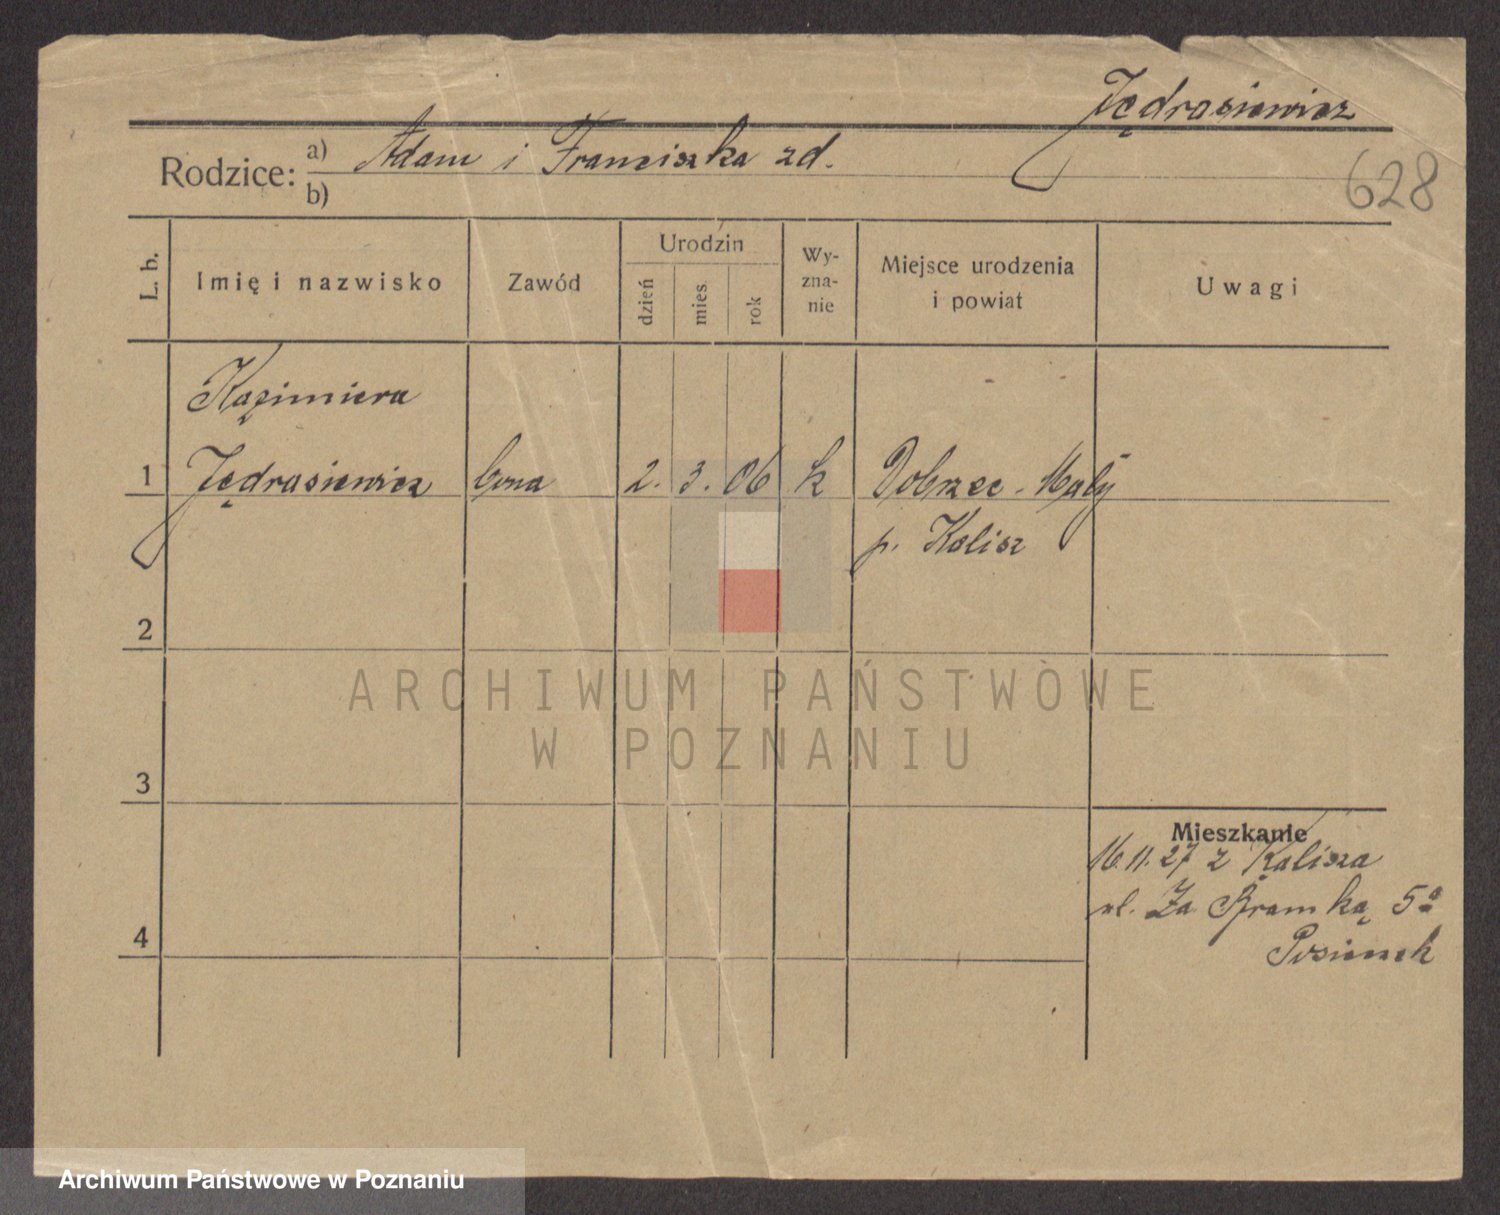 Jędrasiewicz
Rodzice: a) Adam i Franciszka zd.
b)
628
L. b.
Imię i nazwisko
Zawód
Urodzin
dzień
mies
rok
Wy-
zna-
nie
Miejsce urodzenia
i powiat
Uwagi
Kazimiera
1 Jędrasiewicz 2. 3. 06 k Dobrzec-Mały
p. Kalisz
2
ARCHIWUM PAŃSTWOWE
W POZNANIU
3
Mieszkanie
16.11.27 z Kalisza
ul. Za Bramką 5a
4
Archiwum Państwowe w Poznaniu